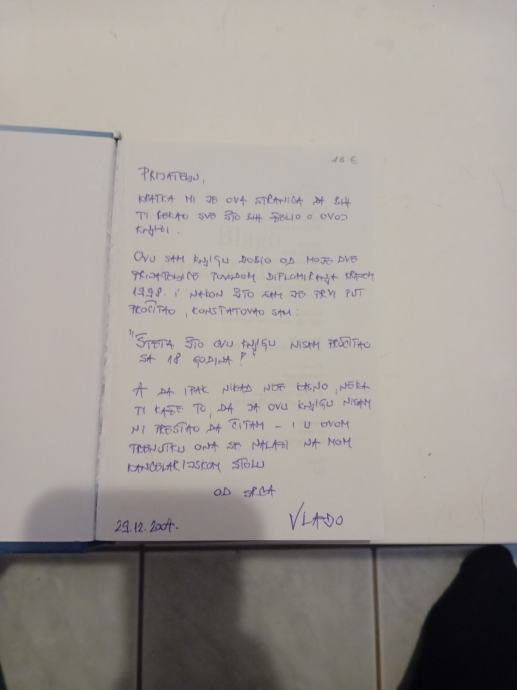 10 €
PRIJATELJU,
KRATKA MI JE OVA STRANICA DA BIH
TI REKAO SVE ŠTO BIH ŽELIO O OVOJ
KNJIZI.
OVU SAM KNJIGU DOBIO OD MOJE DVE
PRIJATELJICE POVODOM DIPLOMIRANJA KRAJEM
1998. I NAKON ŠTO SAM JE PRVI PUT
PROČITAO, KONSTATOVAO SAM:
"ŠTETA ŠTO OVU KNJIGU NISAM PROČITAO
SA 18 GODINA!"
A DA IPAK NIKAD NIJE KASNO, NEKA
TI KAŽE TO, DA JA OVU KNJIGU NISAM
NI PRESTAO DA ČITAM - I U OVOM
TRENUTKU ONA SE NALAZI NA MOM
KANCELARIJSKOM STOLU
OD SRCA
29.12.2004. VLADO